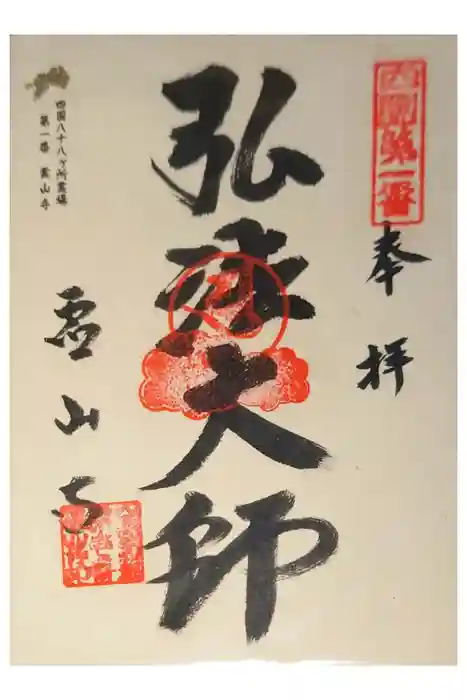 四国第一番
奉拝
弘法大師
霊山寺
四国八十八ヶ所霊場
第一番 霊山寺